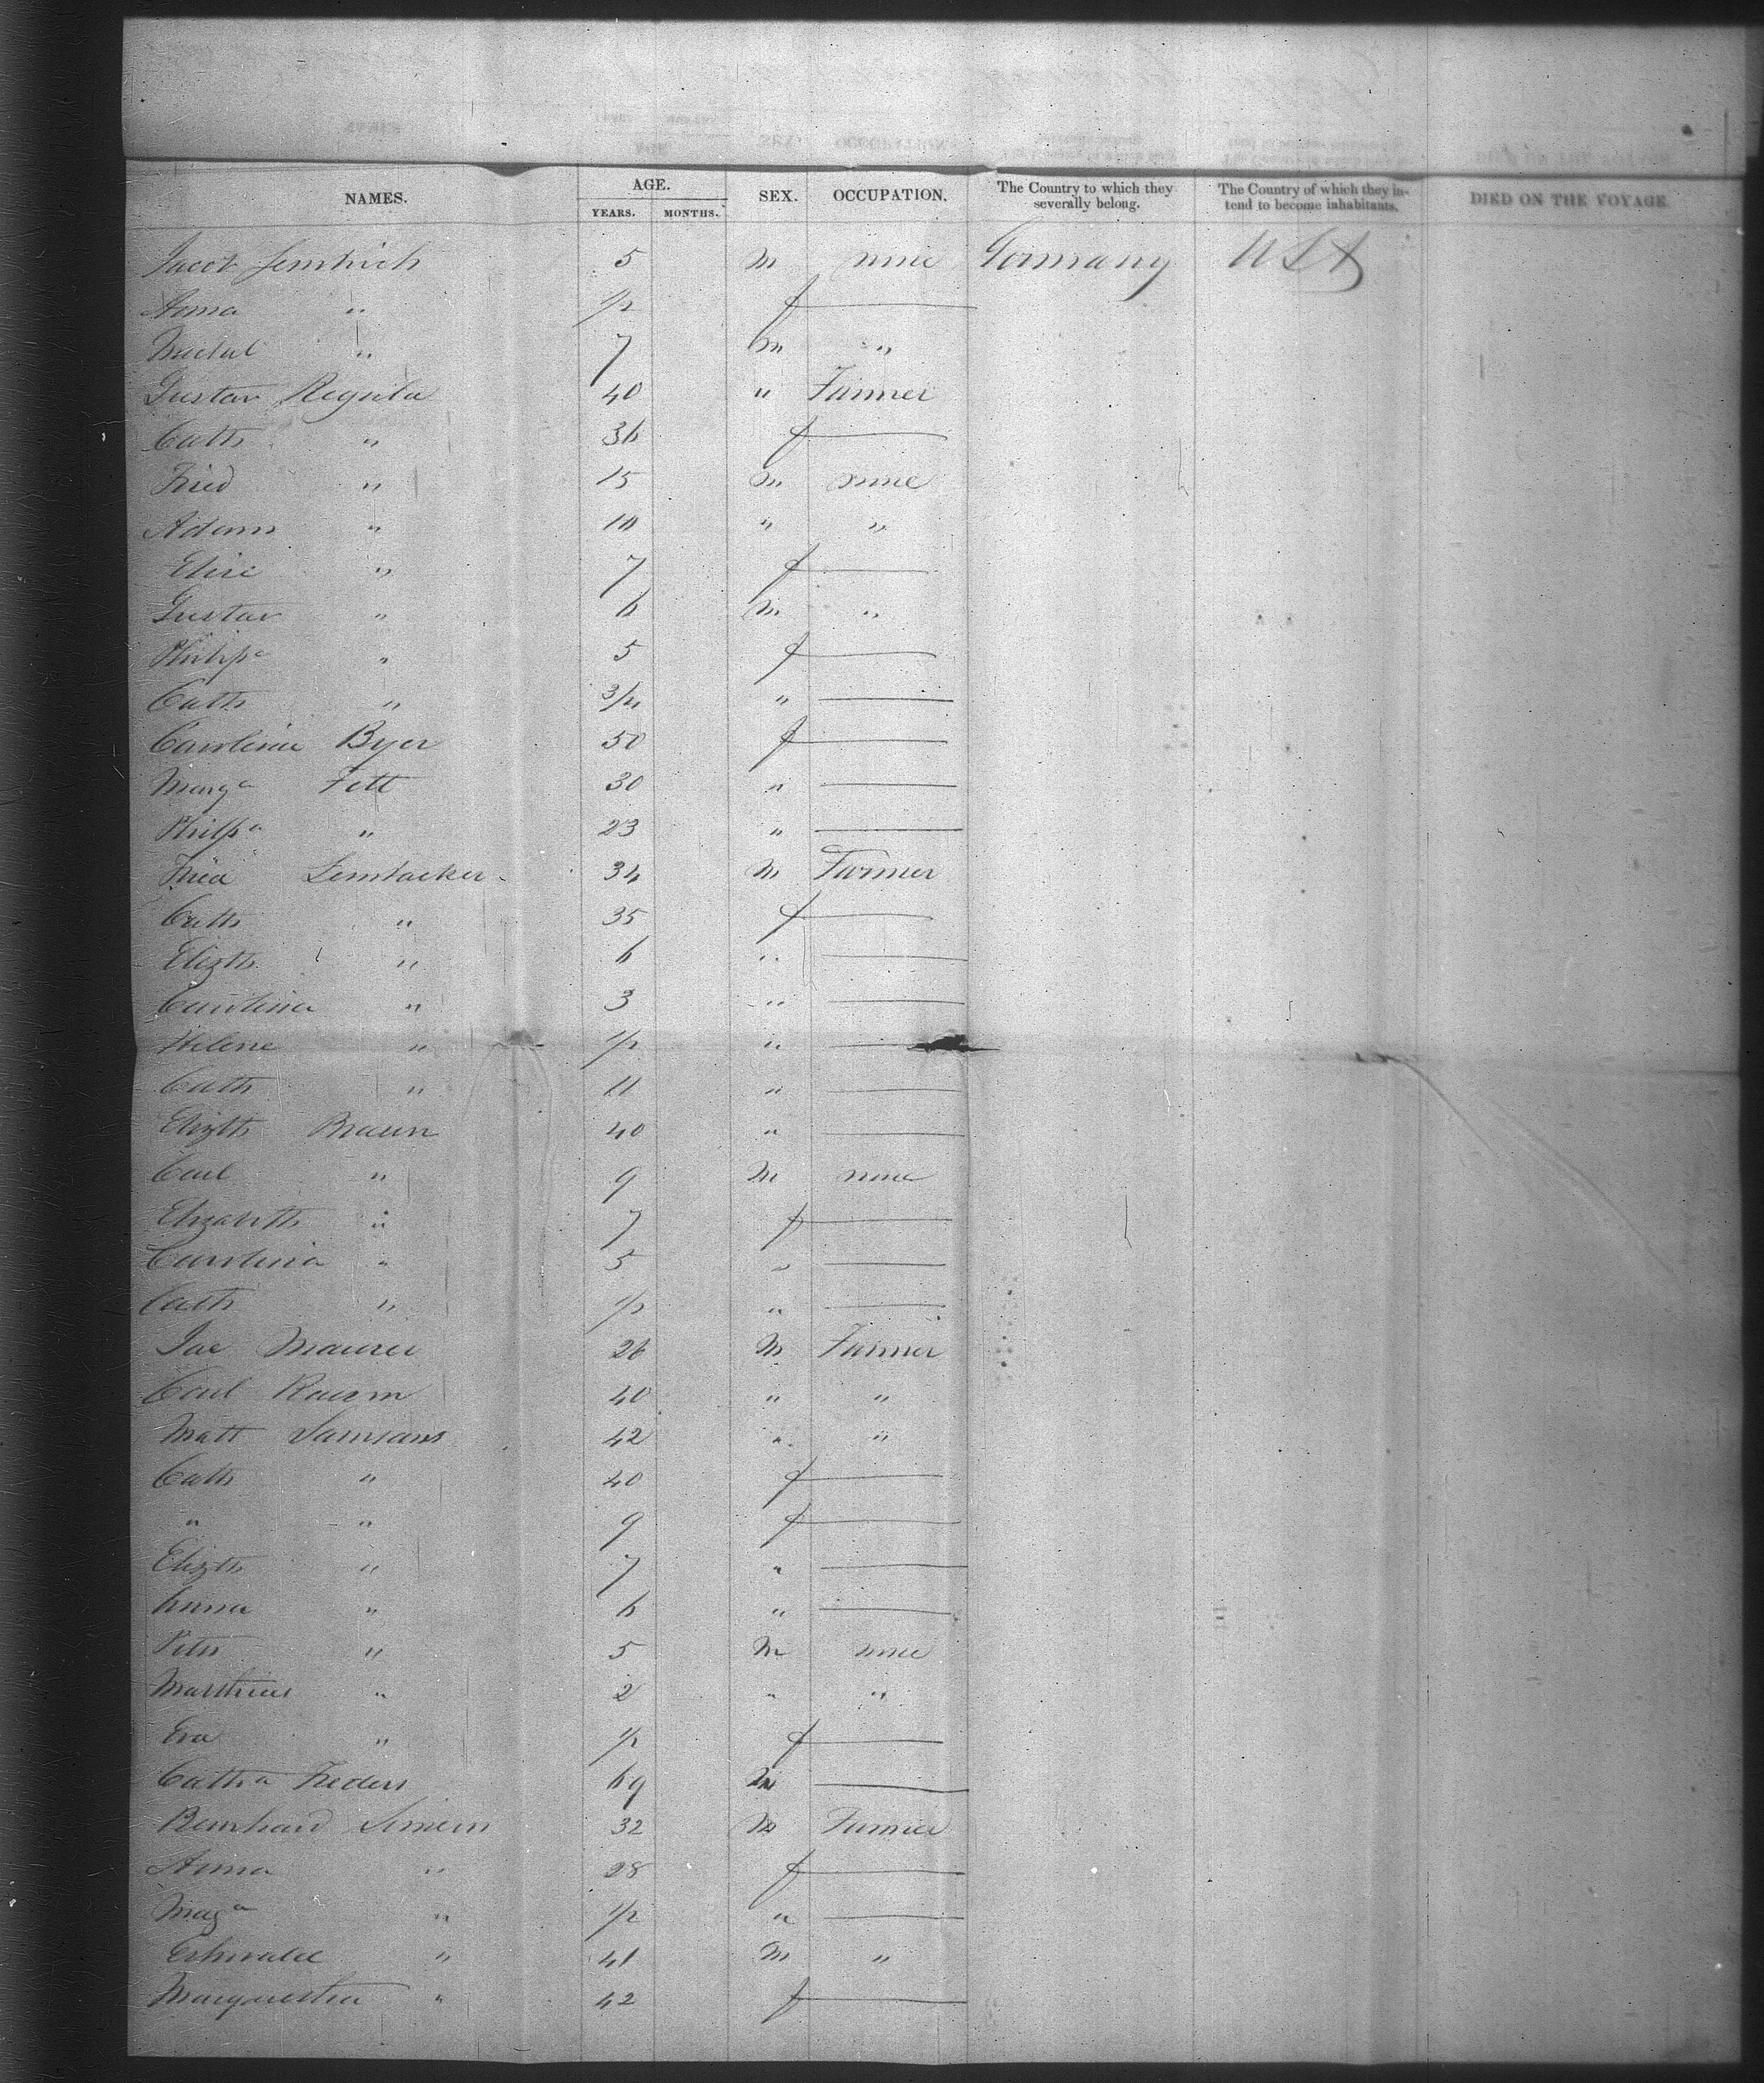 NAMES. AGE. SEX. OCCUPATION. The Country to which they severally belong. The Country of which they intend to become inhabitants. DIED ON THE VOYAGE.
YEARS. MONTHS.
Jacob 5 M none Germany USA
Anna " 1/2 f —
" 7 M "
Gustav Regula 40 " Farmer
Cath " 36 f —
Fried " 15 M none
Adam " 10 " "
Elise " 7 f —
Gustav " 6 M "
Philipa " 5 f —
Cath " 3/4 " —
Carolina Byer 50 f —
Marga Fett 30 " —
Philpa " 23 " —
Fried 34 M Farmer
Cath " 35 f —
Elizth " 6 " —
Carolina " 3 " —
Helene " 1/2 " —
Cath " 11 " —
Elizth Braun 40 " —
Carl " 9 M none
Elizabeth " 7 f —
Carolina " 5 " —
Cath " 1/2 " —
Jac Maurer 26 M Farmer
Carl 40 " "
Matt 42 " "
Cath " 40 f —
" " 9 f —
Elizth " 7 " —
Anna " 6 " —
Peter " 5 M none
" 2 " "
Eva " 1/2 f —
Catha 69 —
Bernhard 32 M Farmer
Anna " 28 f —
Maga " 1/2 " —
" 41 M "
" 42 f —